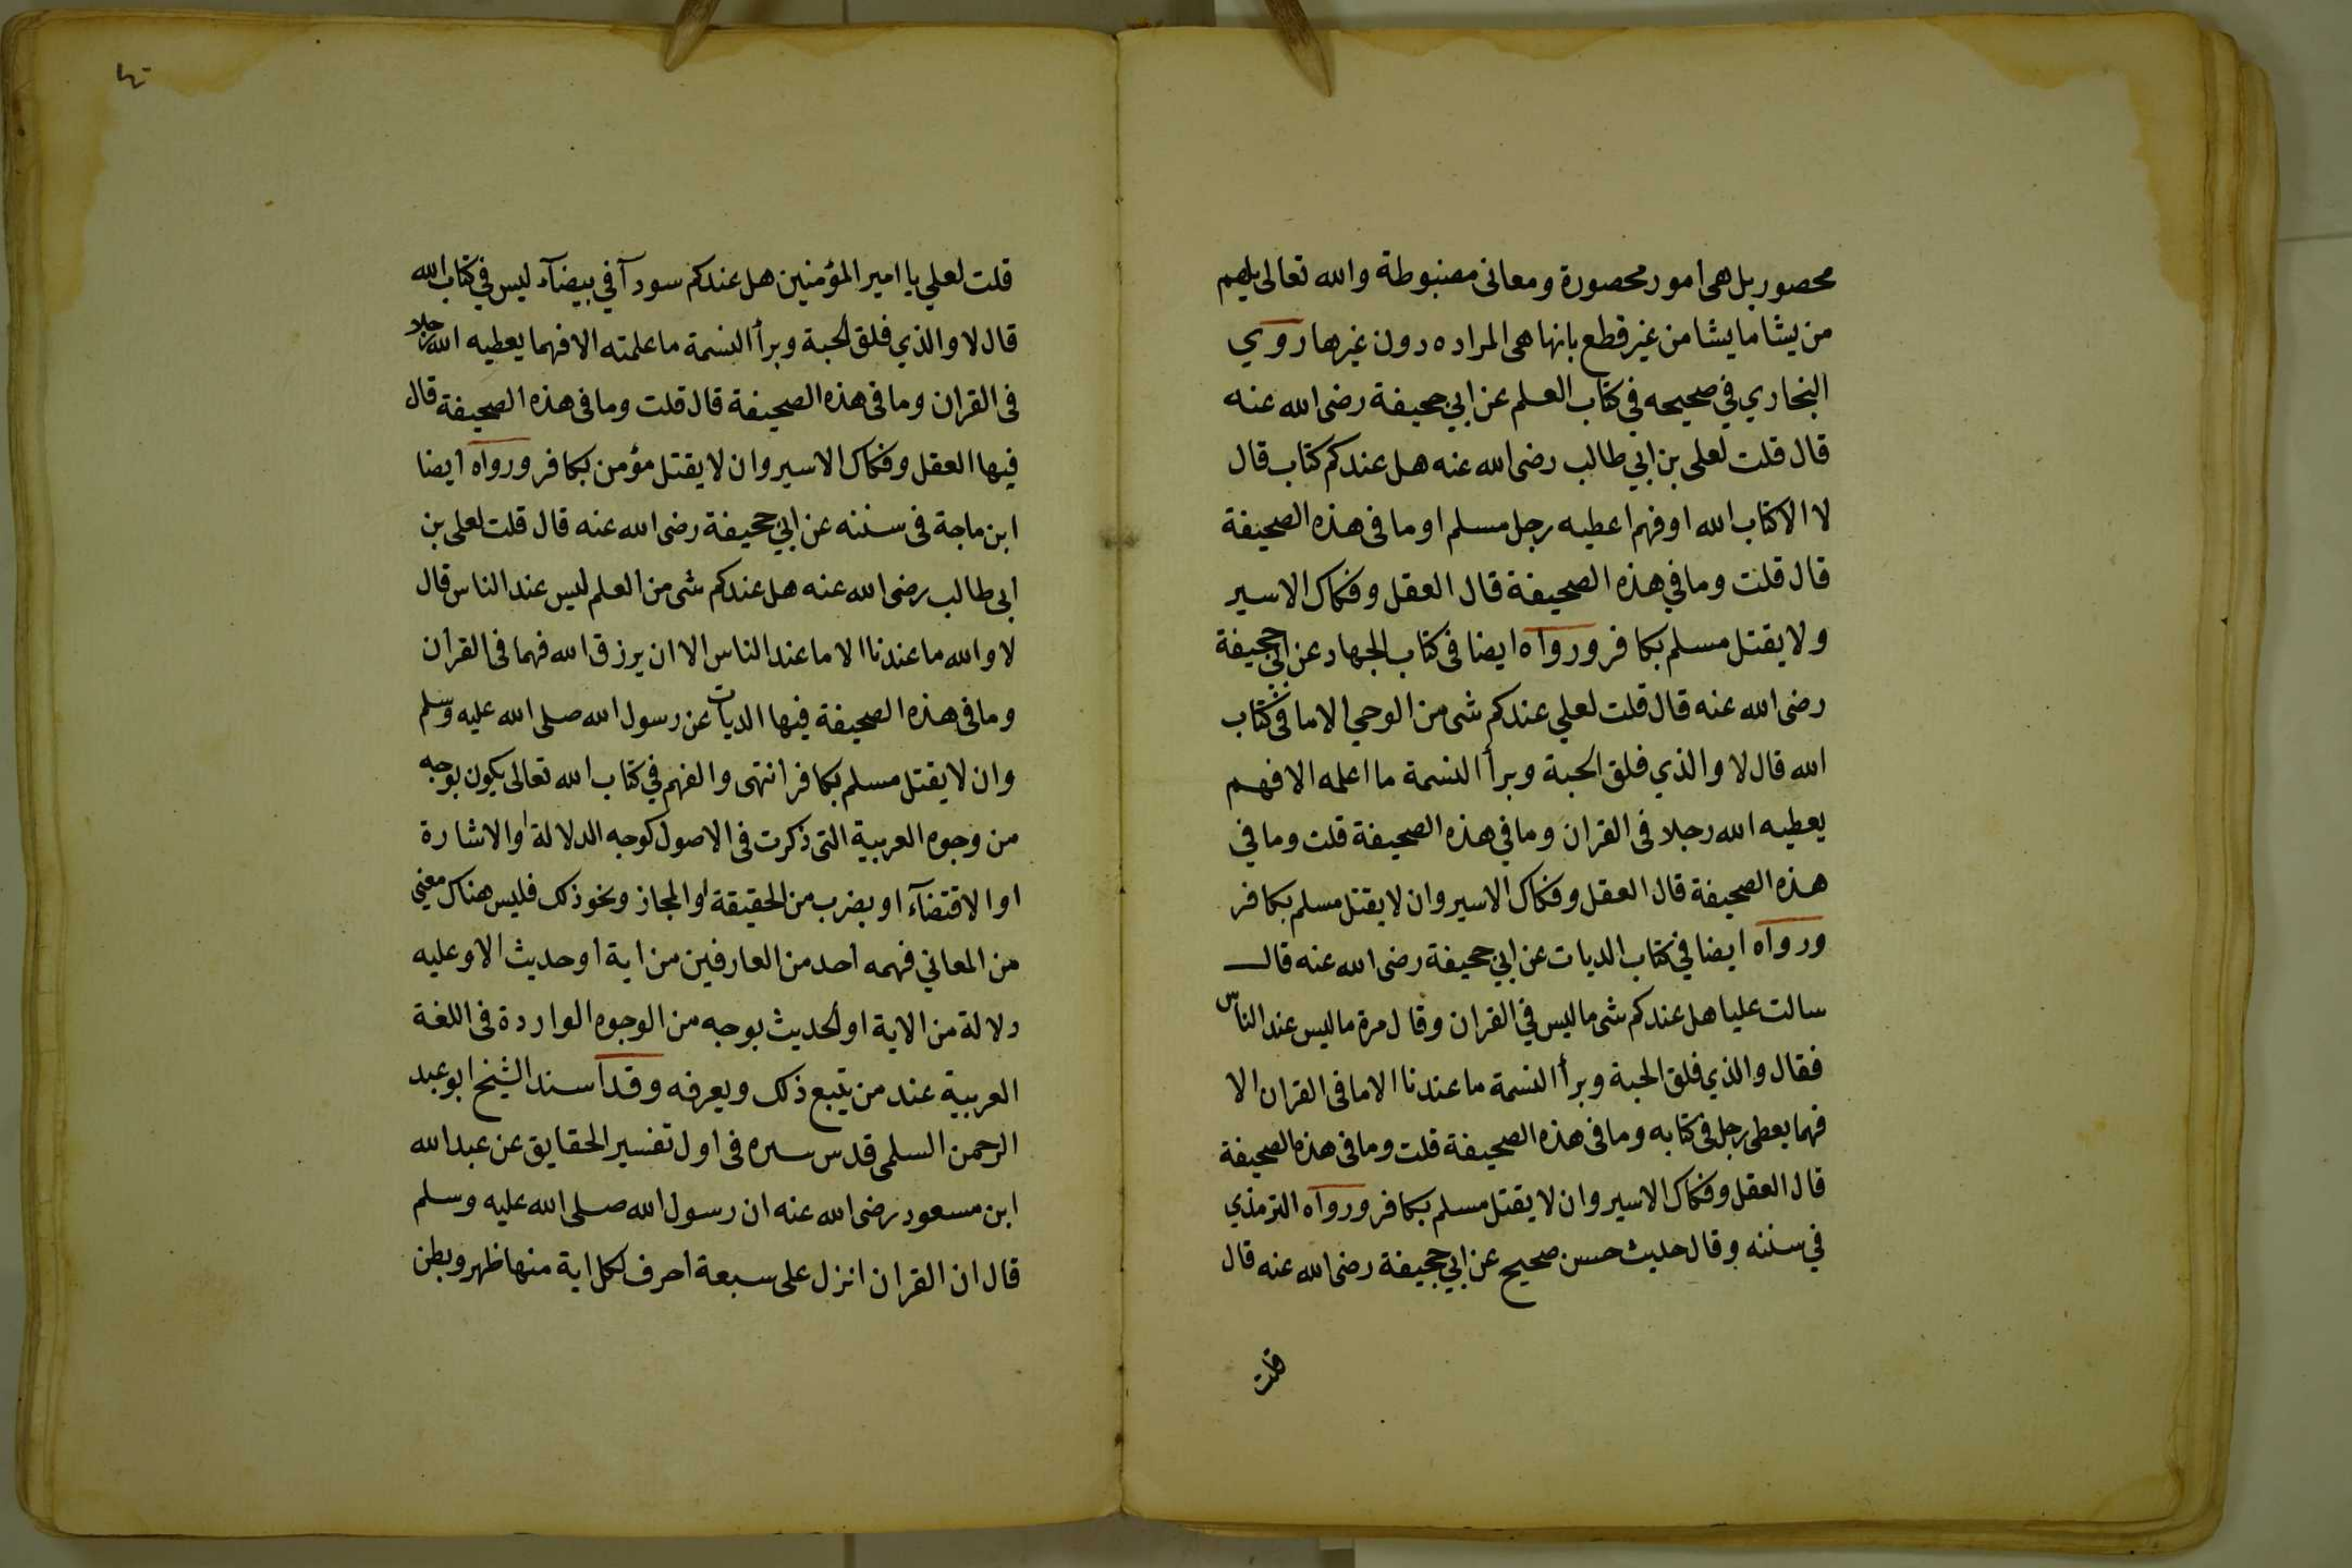 محصور بل هى امور محصورة ومعانى مضبوطة والله تعالى يلهم
من يشا ما يشا من غير قطع بانها هى المراده دون غيرها روي
البخاري في صحيحه في كتاب العلم عن ابي جحيفة رضى الله عنه
قال قلت لعلى بن ابي طالب رضى الله عنه هل عندكم كتاب قال
لا الا كتاب الله او فهم اعطيه رجل مسلم او ما فى هذه الصحيفة
قال قلت وما في هذه الصحيفة قال العقل وفكاك الاسير
ولا يقتل مسلم بكافر ورواه ايضا فى كتاب الجهاد عن ابي جحيفة
رضى الله عنه قال قلت لعلي عندكم شى من الوحي الا ما فى كتاب
الله قال لا والذي فلق الحبة وبرأ النسمة ما اعلمه الا فهم
يعطيه الله رجلا فى القران وما في هذه الصحيفة قلت وما في
هذه الصحيفة قال العقل وفكاك الاسير وان لا يقتل مسلم بكافر
ورواه ايضا في كتاب الديات عن ابي جحيفة رضى الله عنه قال
سالت عليا هل عندكم شى ما ليس في القران وقال مرة ما ليس عند الناس
فقال والذي فلق الحبة وبرأ النسمة ما عندنا الا ما فى القران الا
فهما يعطى رجل فى كتابه وما فى هذه الصحيفة قلت وما فى هذه الصحيفة
قال العقل وفكاك الاسير وان لا يقتل مسلم بكافر ورواه الترمذي
في سننه وقال حديث حسن صحيح عن ابي جحيفة رضى الله عنه قال
قلت
قلت لعلي يا امير المؤمنين هل عندكم سودآ في بيضآء ليس في كتاب الله
قال لا والذي فلق الحبة وبرأ النسمة ما علمته الا فهما يعطيه الله رجلا
فى القران وما فى هذه الصحيفة قال قلت وما فى هذه الصحيفة قال
فيها العقل وفكاك الاسير وان لا يقتل مؤمن بكافر ورواه ايضا
ابن ماجة فى سننه عن ابي جحيفة رضى الله عنه قال قلت لعلى بن
ابى طالب رضى الله عنه هل عندكم شى من العلم ليس عند الناس قال
لا والله ما عندنا الا ما عند الناس الا ان يرزق الله فهما فى القرأن
وما فى هذه الصحيفة فيها الديات عن رسول الله صلى الله عليه وسلم
وان لا يقتل مسلم بكافر انتهى والفهم في كتاب الله تعالى يكون بوجه
من وجوه العربية التى ذكرت فى الاصول كوجه الدلالة او الاشارة
او الاقتضآء او بضرب من الحقيقة او المجاز ونحو ذلك فليس هناك معنى
من المعاني فهمه احد من العارفين من اية او حديث الا وعليه
دلالة من الاية او الحديث بوجه من الوجوه الواردة فى اللغة
العربية عند من يتبع ذلك ويعرفه وقد اسند الشيخ ابو عبد
الرحمن السلمى قدس سره فى اول تفسير الحقايق عن عبد الله
ابن مسعود رضى الله عنه ان رسول الله صلى الله عليه وسلم
قال ان القران انزل على سبعة احرف لكل اية منها ظهر وبطن